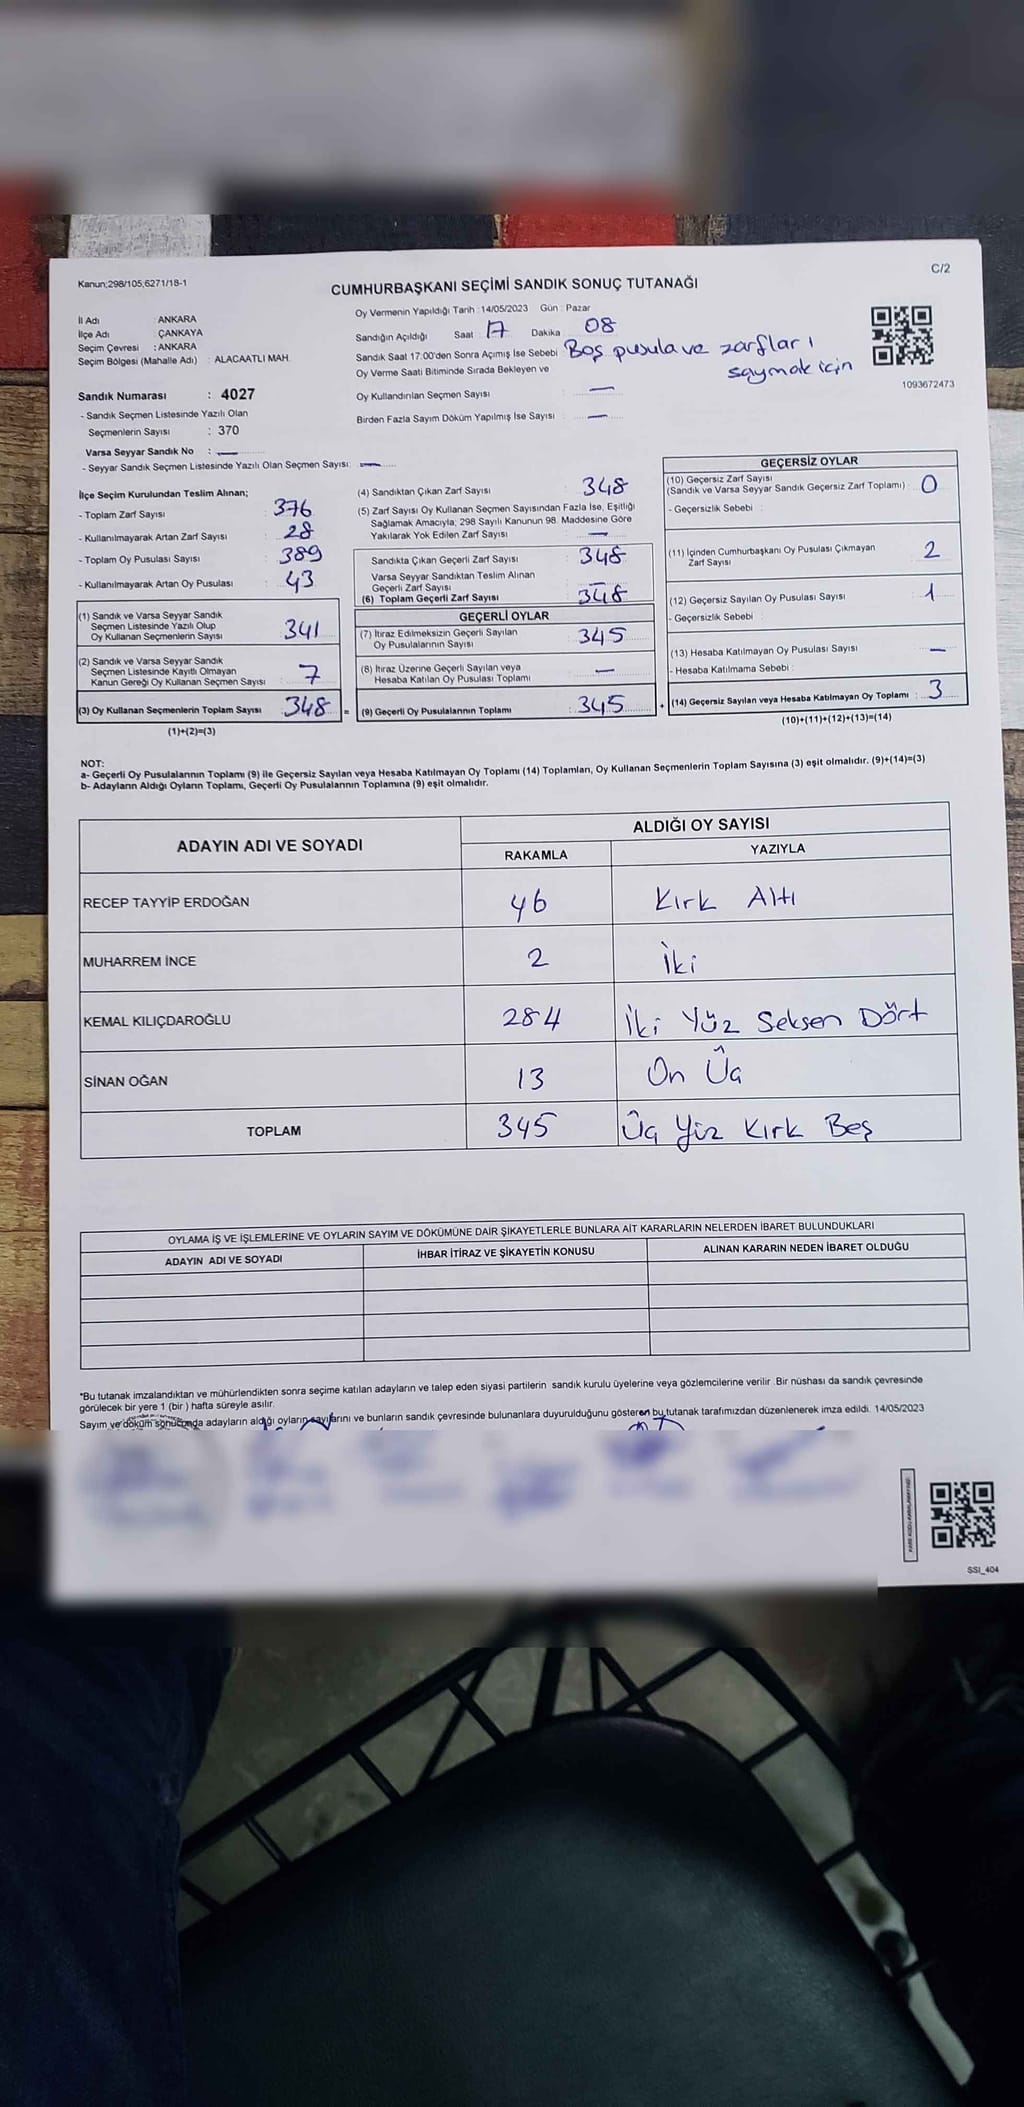 Kanun;298/105,6271/18-1
C/2
CUMHURBAŞKANI SEÇİMİ SANDIK SONUÇ TUTANAĞI
İl Adı ANKARA
İlçe Adı ÇANKAYA
Seçim Çevresi : ANKARA
Seçim Bölgesi (Mahalle Adı) : ALACAATLI MAH.
Oy Vermenin Yapıldığı Tarih : 14/05/2023 Gün : Pazar
Sandığın Açıldığı Saat : 17 Dakika : 08
Sandık Saat 17:00'den Sonra Açımış İse Sebebi Boş pusula ve zarfları
saymak için
Oy Verme Saati Bitiminde Sırada Bekleyen ve
Oy Kullandırılan Seçmen Sayısı : —
Birden Fazla Sayım Döküm Yapılmış İse Sayısı : —
1093672473
Sandık Numarası : 4027
- Sandık Seçmen Listesinde Yazılı Olan
Seçmenlerin Sayısı : 370
Varsa Seyyar Sandık No : —
- Seyyar Sandık Seçmen Listesinde Yazılı Olan Seçmen Sayısı: —
İlçe Seçim Kurulundan Teslim Alınan;
- Toplam Zarf Sayısı : 376
- Kullanılmayarak Artan Zarf Sayısı : 28
- Toplam Oy Pusulası Sayısı : 389
- Kullanılmayarak Artan Oy Pusulası : 43
(1) Sandık ve Varsa Seyyar Sandık
Seçmen Listesinde Yazılı Olup
Oy Kullanan Seçmenlerin Sayısı : 341
(2) Sandık ve Varsa Seyyar Sandık
Seçmen Listesinde Kayıtlı Olmayan
Kanun Gereği Oy Kullanan Seçmen Sayısı : 7
(3) Oy Kullanan Seçmenlerin Toplam Sayısı : 348
(1)+(2)=(3)
(4) Sandıktan Çıkan Zarf Sayısı : 348
(5) Zarf Sayısı Oy Kullanan Seçmen Sayısından Fazla İse, Eşitliği
Sağlamak Amacıyla; 298 Sayılı Kanunun 98. Maddesine Göre
Yakılarak Yok Edilen Zarf Sayısı : —
Sandıkta Çıkan Geçerli Zarf Sayısı : 348
Varsa Seyyar Sandıktan Teslim Alınan
Geçerli Zarf Sayısı : —
(6) Toplam Geçerli Zarf Sayısı : 348
GEÇERLİ OYLAR
(7) İtiraz Edilmeksizin Geçerli Sayılan
Oy Pusulalarının Sayısı : 345
(8) İtiraz Üzerine Geçerli Sayılan veya
Hesaba Katılan Oy Pusulası Toplamı : —
= (9) Geçerli Oy Pusulalarının Toplamı : 345
GEÇERSİZ OYLAR
(10) Geçersiz Zarf Sayısı
(Sandık ve Varsa Seyyar Sandık Geçersiz Zarf Toplamı) : 0
- Geçersizlik Sebebi :
(11) İçinden Cumhurbaşkanı Oy Pusulası Çıkmayan
Zarf Sayısı : 2
(12) Geçersiz Sayılan Oy Pusulası Sayısı : 1
- Geçersizlik Sebebi :
(13) Hesaba Katılmayan Oy Pusulası Sayısı : —
- Hesaba Katılmama Sebebi :
+ (14) Geçersiz Sayılan veya Hesaba Katılmayan Oy Toplamı : 3
(10)+(11)+(12)+(13)=(14)
NOT:
a- Geçerli Oy Pusulalarının Toplamı (9) ile Geçersiz Sayılan veya Hesaba Katılmayan Oy Toplamı (14) Toplamları, Oy Kullanan Seçmenlerin Toplam Sayısına (3) eşit olmalıdır. (9)+(14)=(3)
b- Adayların Aldığı Oyların Toplamı, Geçerli Oy Pusulalarının Toplamına (9) eşit olmalıdır.
ADAYIN ADI VE SOYADI ALDIĞI OY SAYISI
RAKAMLA YAZIYLA
RECEP TAYYİP ERDOĞAN 46 Kırk Altı
MUHARREM İNCE 2 İki
KEMAL KILIÇDAROĞLU 284 İki Yüz Seksen Dört
SİNAN OĞAN 13 On Üç
TOPLAM 345 Üç Yüz Kırk Beş
OYLAMA İŞ VE İŞLEMLERİNE VE OYLARIN SAYIM VE DÖKÜMÜNE DAİR ŞİKAYETLERLE BUNLARA AİT KARARLARIN NELERDEN İBARET BULUNDUKLARI
ADAYIN ADI VE SOYADI İHBAR İTİRAZ VE ŞİKAYETİN KONUSU ALINAN KARARIN NEDEN İBARET OLDUĞU
*Bu tutanak imzalandıktan ve mühürlendikten sonra seçime katılan adayların ve talep eden siyasi partilerin sandık kurulu üyelerine veya gözlemcilerine verilir. Bir nüshası da sandık çevresinde
görülecek bir yere 1 (bir) hafta süreyle asılır.
Sayım ve döküm sonucunda adayların aldığı oyların sayılarını ve bunların sandık çevresinde bulunanlara duyurulduğunu gösteren bu tutanak tarafımızdan düzenlenerek imza edildi. 14/05/2023
SSI_404